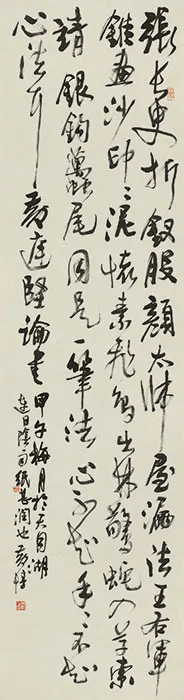 張長史折釵股顏太師屋漏法王右軍
錐畫沙印〻泥懷素飛鳥出林驚蛇入草索
靖銀鉤蠆尾同是一筆法心不知手〻不知
心法耳 黃庭堅論書 甲午梅月於天目湖
連日陰雨紙甚潤也 黃惇